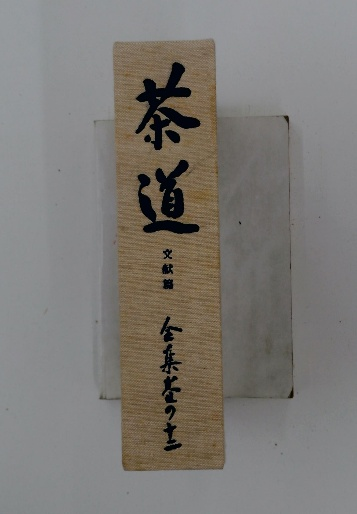 茶道
文献篇
全集巻の十二